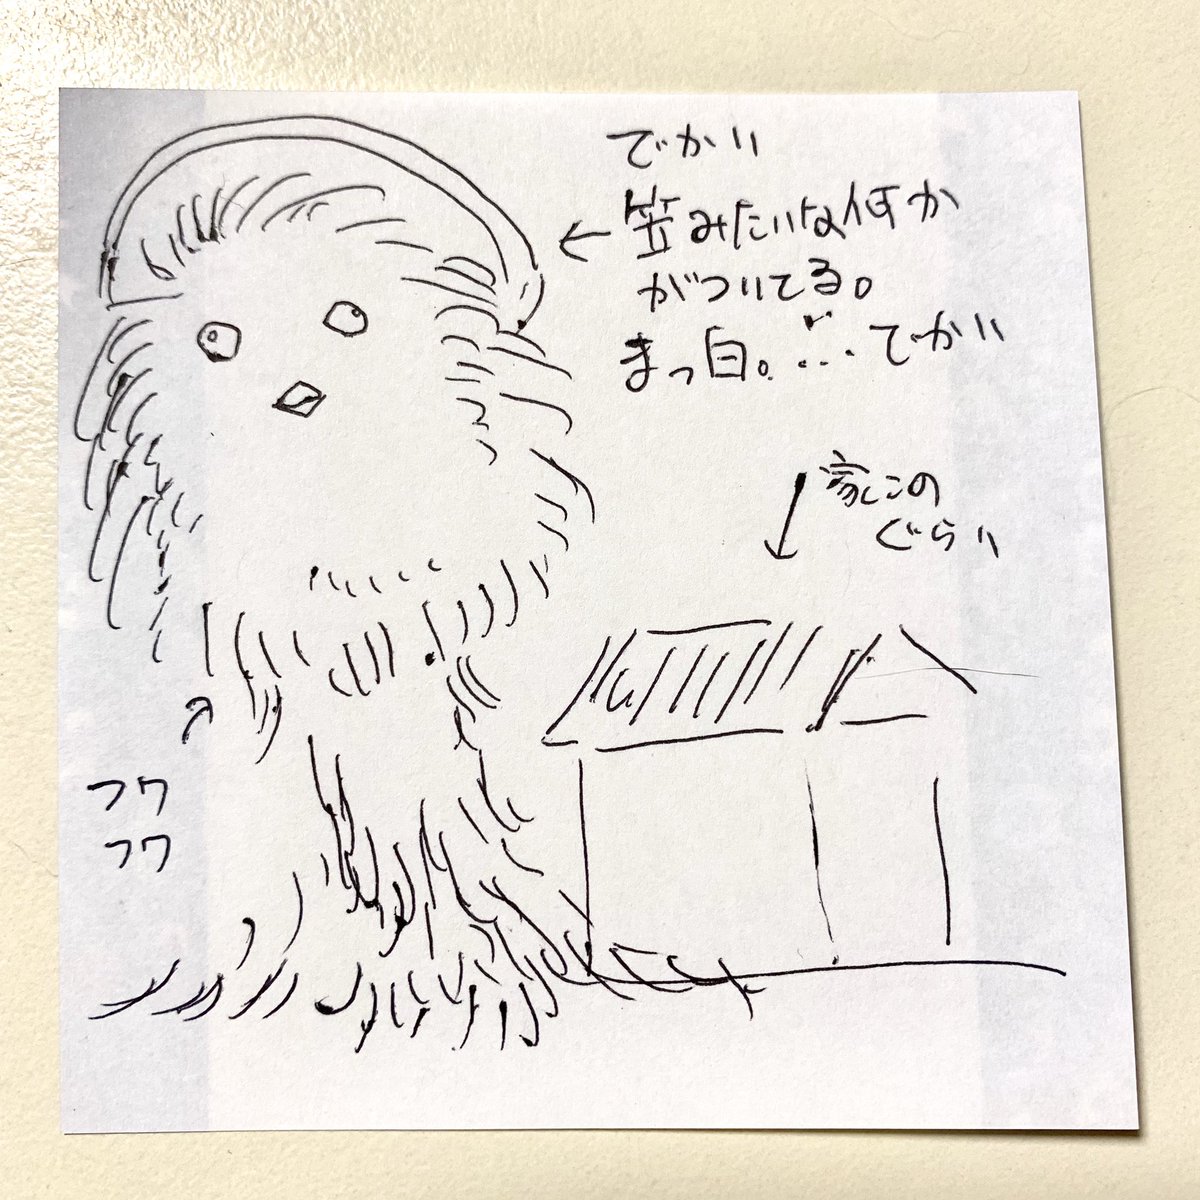 でかい
笠みたいな何か
がついてる。
まっ白。…でかい
家このぐらい
フワ
フワ